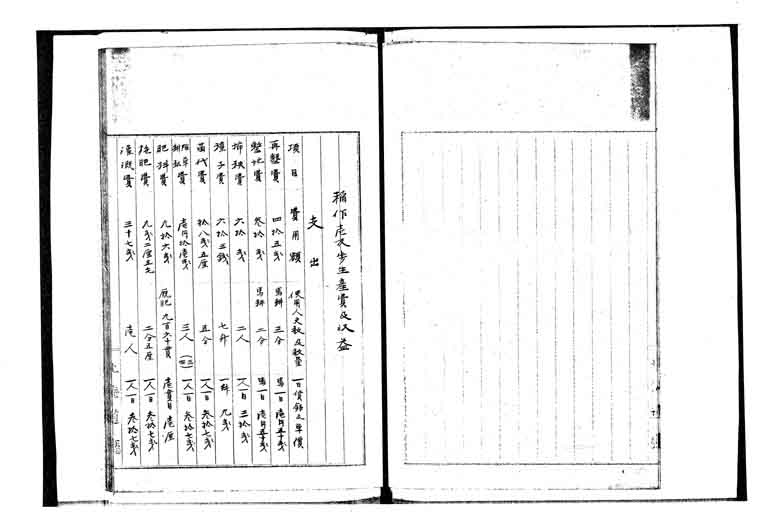 稲作壱反歩生産費及収益
支出
項目 費用額 使用人夫数及数量 一日賃銭又単価
再墾費 四拾五銭 馬耕 三分 馬一日 壱円五十銭
整地費 参拾銭 馬耕 二分 馬一日 壱円五十銭
挿秧費 六拾銭 二人 一人一日 三拾銭
種子費 六拾三銭 七升 一升 九銭
苗代費 拾八銭五厘 五分 一人一日 参拾七銭
除草費 壱円拾壱銭 三人 一人一日 参拾七銭
肥料費 九拾六銭 厩肥 九百六十貫 壱貫目 壱厘
施肥費 九銭二厘五毛 二分五厘 一人一日 参拾七銭
灌漑費 三十七銭 壱人 一人一日 参拾七銭